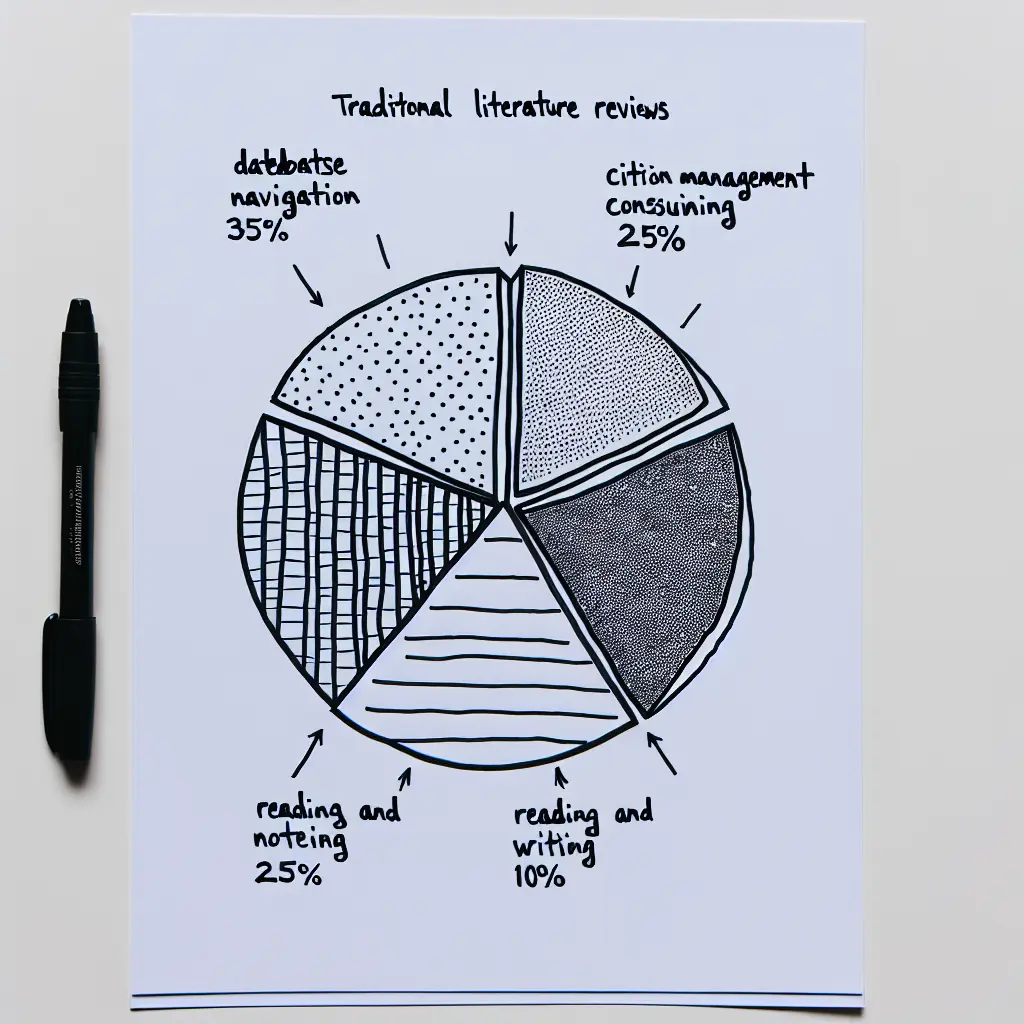 Traditonal literature reviews
datebbatse
navigation
35%
cition management
conssuining
25%
reading and
noteing
25%
reading and
writing
10%